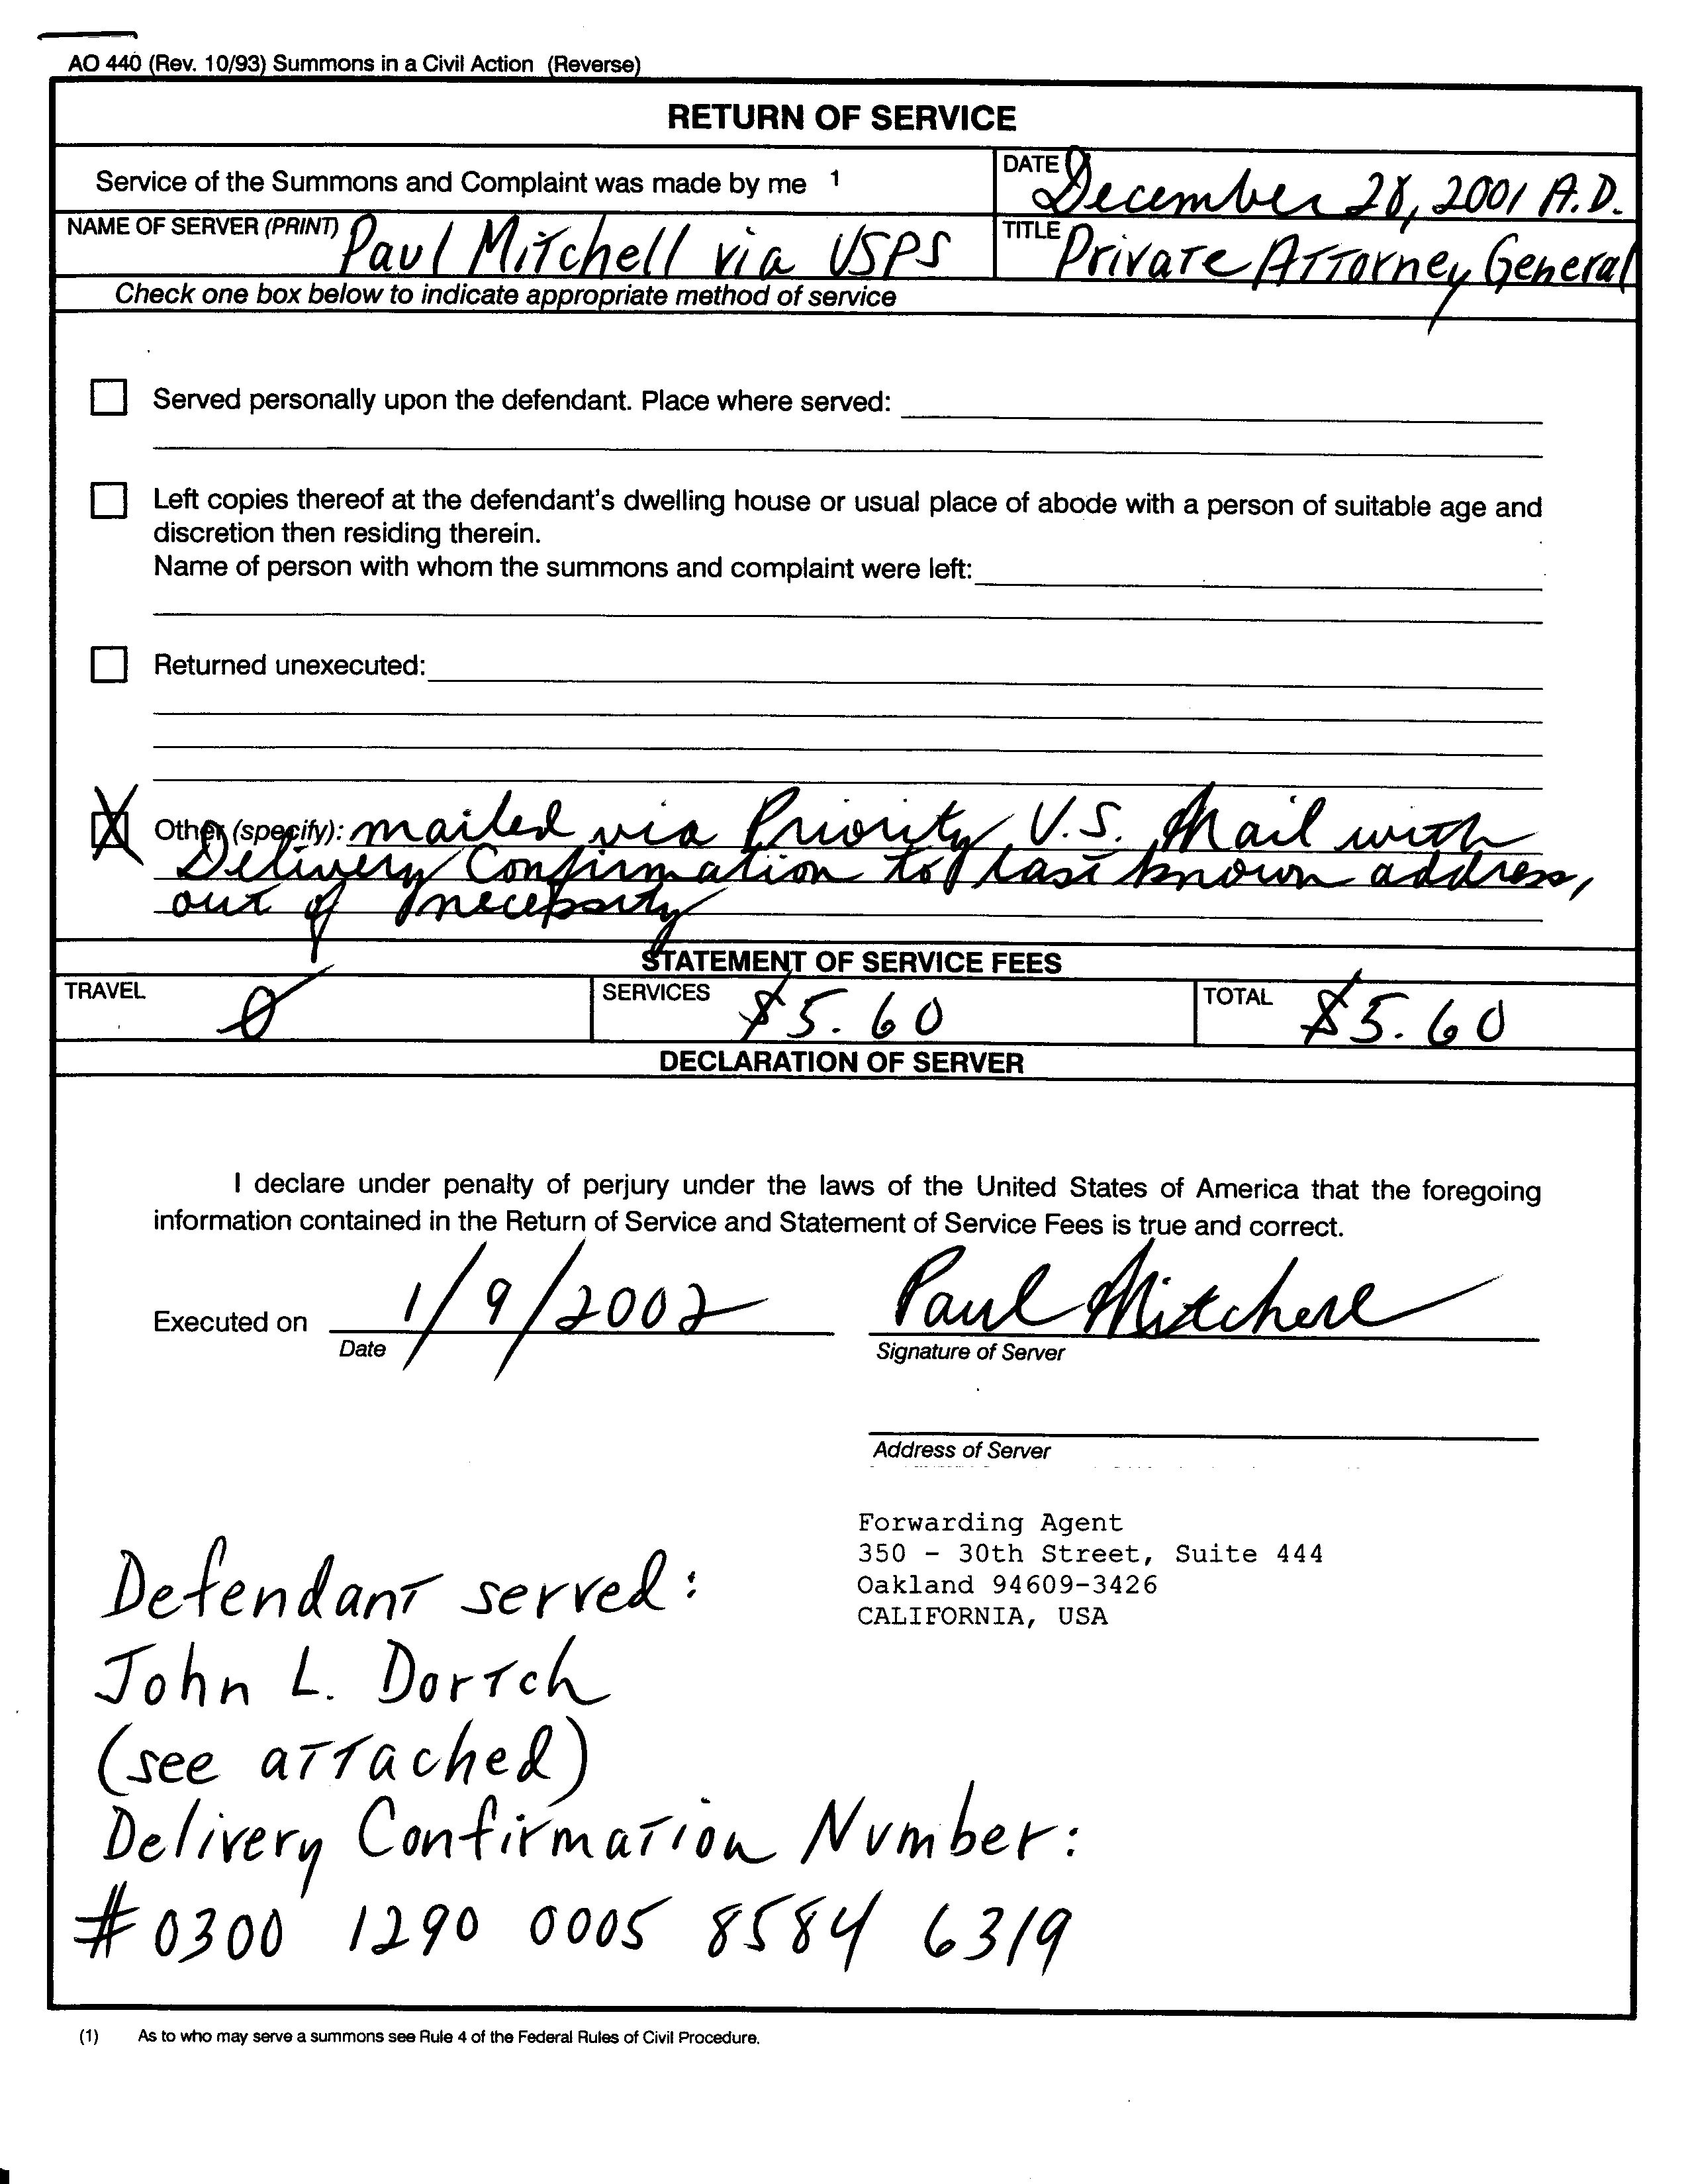 AO 440 (Rev. 10/93) Summons in a Civil Action (Reverse)
RETURN OF SERVICE
Service of the Summons and Complaint was made by me 1
DATE December 28, 2001 A.D.
NAME OF SERVER (PRINT) Paul Mitchell via USPS
TITLE Private Attorney General
Check one box below to indicate appropriate method of service
Served personally upon the defendant. Place where served:
Left copies thereof at the defendant's dwelling house or usual place of abode with a person of suitable age and
discretion then residing therein.
Name of person with whom the summons and complaint were left:
Returned unexecuted:
X Other (specify): mailed via Priority U.S. Mail with
Delivery Confirmation to last known address,
out of necessity
STATEMENT OF SERVICE FEES
TRAVEL 0
SERVICES $5.60
TOTAL $5.60
DECLARATION OF SERVER
I declare under penalty of perjury under the laws of the United States of America that the foregoing
information contained in the Return of Service and Statement of Service Fees is true and correct.
Executed on 1/9/2002
Date
Paul Mitchell
Signature of Server
Address of Server
Forwarding Agent
350 - 30th Street, Suite 444
Oakland 94609-3426
CALIFORNIA, USA
Defendant served:
John L. Dortch
(see attached)
Delivery Confirmation Number:
# 0300 1290 0005 8584 6319
(1) As to who may serve a summons see Rule 4 of the Federal Rules of Civil Procedure.